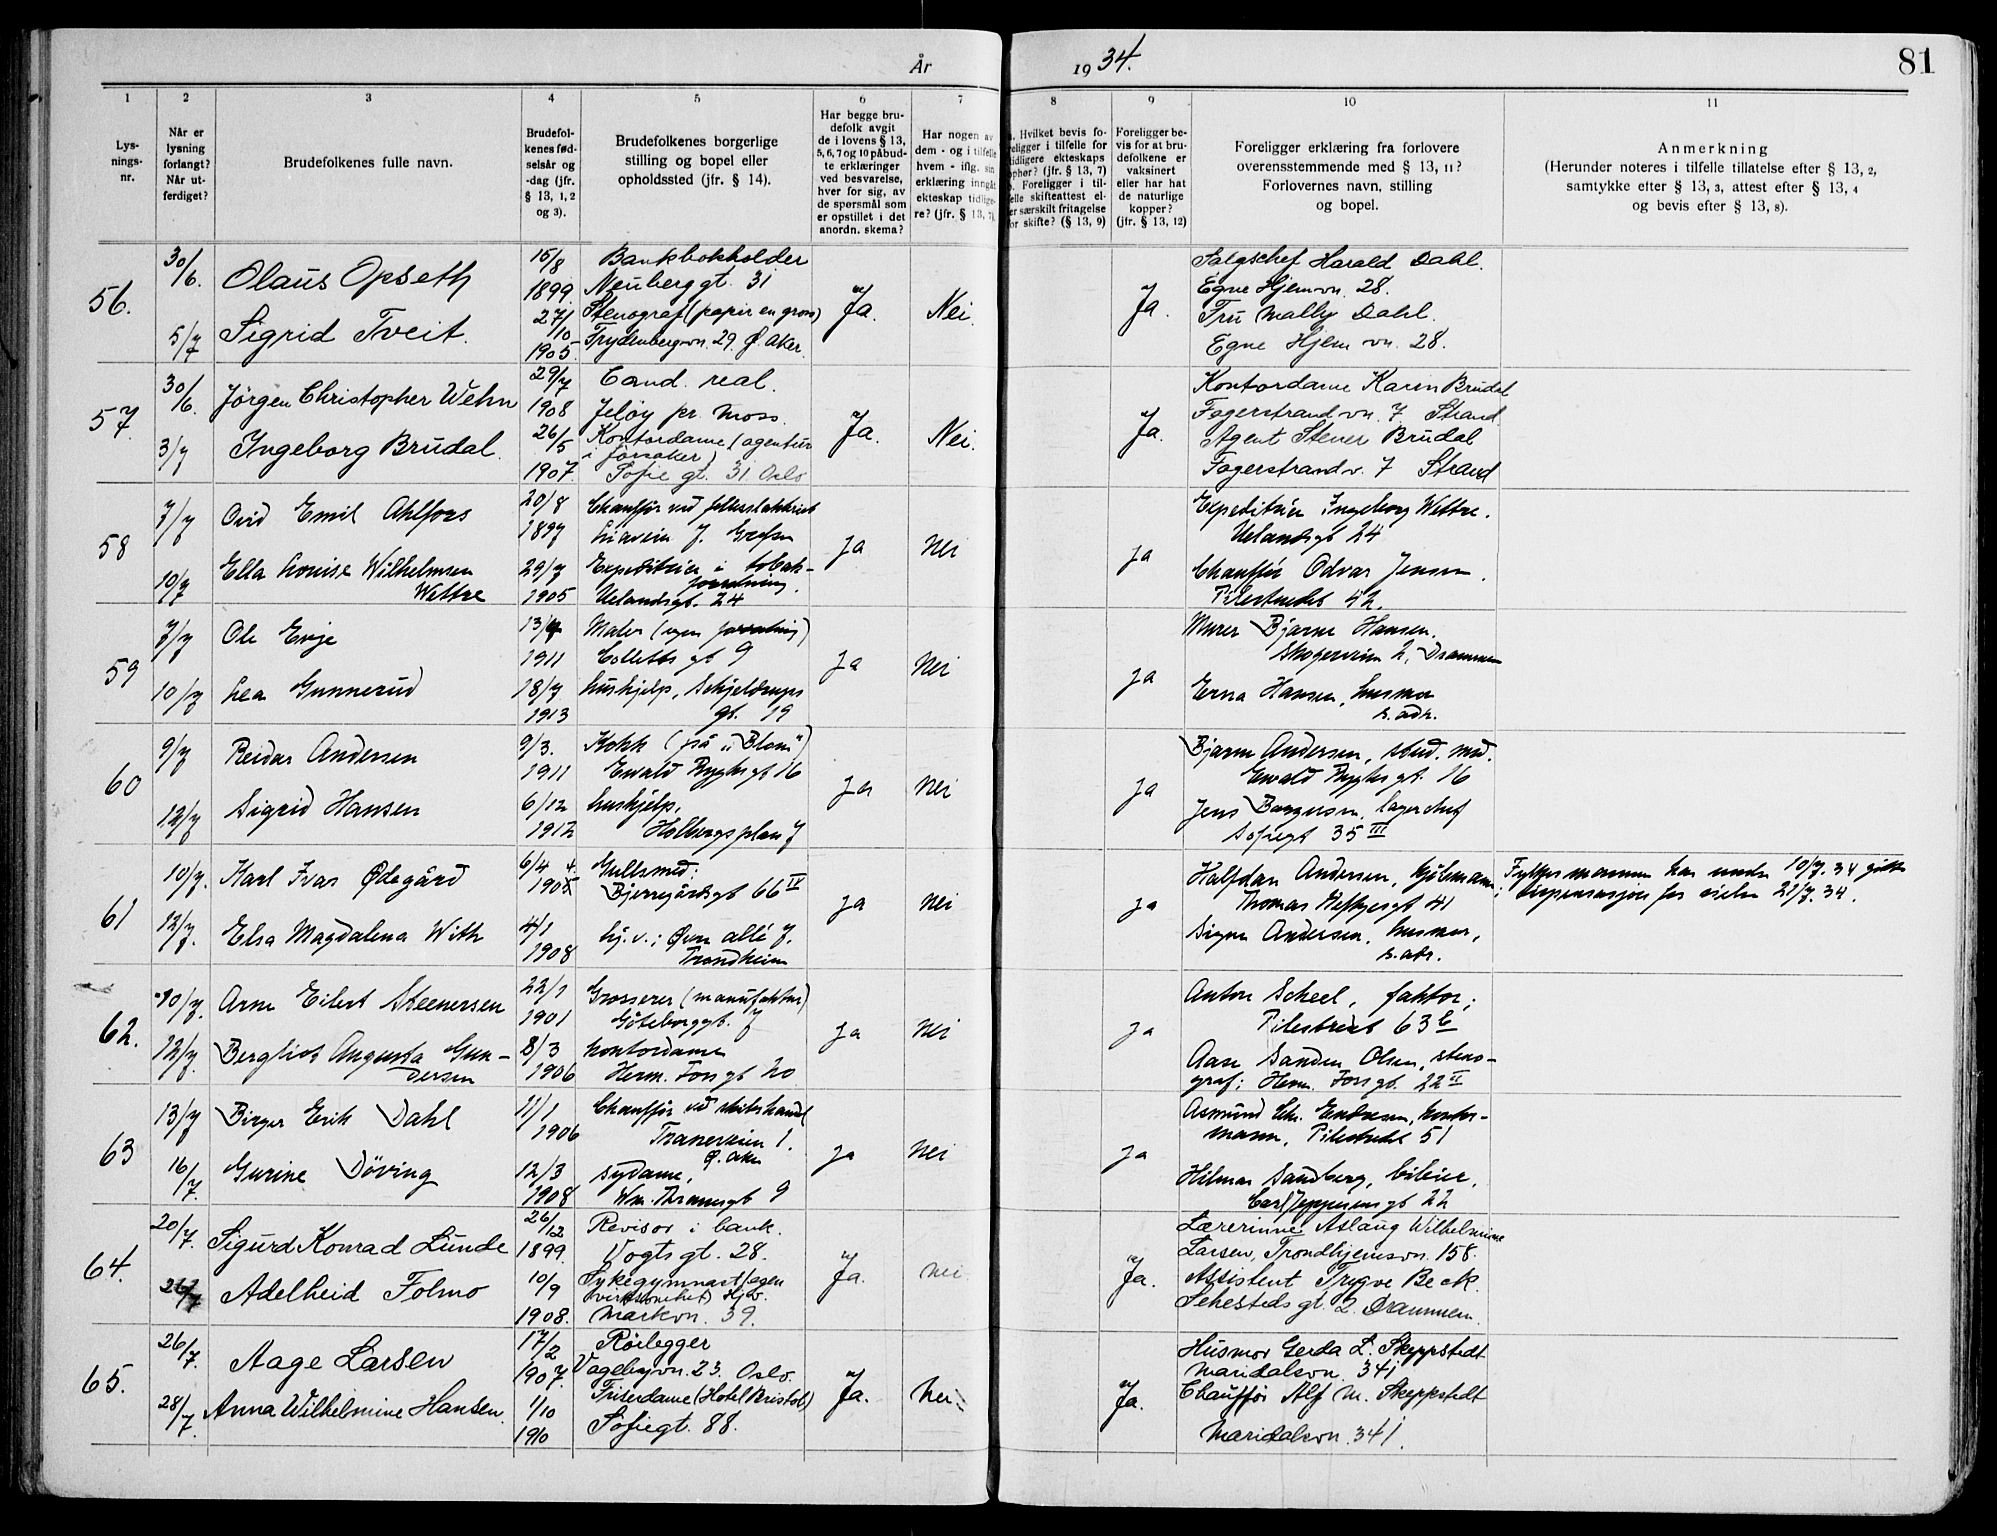 År 1934.
81
1 2 3 4 5 6 7 8 9 10 11
Lys-
nings-
nr.
Når er
lysning
forlangt?
Når ut-
ferdiget?
Brudefolkenes fulle navn.
Brudefol-
kenes fød-
selsår og
-dag (jfr.
§ 13, 1, 2
og 3).
Brudefolkenes borgerlige
stilling og bopel eller
opholdssted (jfr. § 14).
Har begge bru-
defolk avgit
de i lovens § 13,
5, 6, 7 og 10 påbud-
te erklæringer
ved besvarelse,
hver for sig, av
de spørsmål som
er opstillet i det
anordn. skema?
Har nogen av
dem - og i tilfelle
hvem - iflg. sin
erklæring inngåt
ekteskap tidlige-
re? (jfr. § 13, 7).
Hvilket bevis fo-
religger i tilfelle for
tidligere ekteskaps
ophør? (jfr. § 13, 7)
Foreligger i til-
felle skifteattest el-
ler særskilt fritagelse
for skifte? (§ 13, 9)
Foreligger be-
vis for at bru-
defolkene er
vaksinert
eller har hat
de naturlige
kopper?
(jfr. § 13, 12)
Foreligger erklæring fra forlovere
overensstemmende med § 13, 11?
Forlovernes navn, stilling
og bopel.
Anmerkning
(Herunder noteres i tilfelle tillatelse efter § 13, 2,
samtykke efter § 13, 3, attest efter § 13, 4
og bevis efter § 13, 8).
56.
30/6.
5/7
Olaus Opseth
Sigrid Tveit.
15/8
1899.
27/10
1905.
Bankbokholder
Neuberggt. 31
Stenograf (papir en gros)
Frydenbergvn. 29. Ø. Aker.
Ja. Nei. Ja.
Salgschef Harald Dahl.
Egne Hjemvn. 28.
Fru Mally Dahl.
Egne Hjem vn. 28.
57.
30/6.
3/7
Jørgen Christopher Wehn
Ingeborg Brudal.
29/7
1908
26/5
1907.
Cand. real.
Jeløy pr. Moss.
Kontordame (agentur
i forsøker)
Sofie gt. 31 Oslo
Ja. Nei. Ja.
Kontordame Karen Brudal
Fagerstrandvn. 7 Strand.
Agent Stener Brudal
Fagerstrandv. 7 Strand
58
7/7
10/7
Ovid Emil Ahlfors
Ella Louise Wilhelmsen
Wettre
20/8
1897
29/7
1905
Chauffør ved
J. Grefsen
Expeditrice i tobak-
forretning.
Uelandsgt. 24
Ja Nei Ja
Expeditrice Ingeborg Wettre.
Uelandsgt 24
Chauffør Odvar Jensen.
Pilestredet 42.
59
7/7
10/7
Ole Evje
Lea Gunnerud
13/
1911
18/7
1913
Maler (egen forretning)
Colletts gt 9
Hushjelp, Schjeldrups
gt. 19
Ja Nei Ja
Murer Bjarne Hansen.
Skogerveien 2, Drammen
Erna Hansen, husmor
s. adr.
60
9/7
12/7
Reidar Andersen
Sigrid Hansen
9/3.
1911
6/12
1912
Kokk (på "Blom")
Ewald Ryghsgt 16
Hushjelp,
Holbergsplass 7
Ja Nei Ja
Bjarne Andersen, stud. med.
Ewald Ryghsgt. 16
Jens Borgersen, lagerchef
Sofiegt 35 III
61
10/7.
12/7.
Karl Ivar Ødegård
Elsa Magdalena With
6/4
1904.
4/1
1908
Gullsmed;
Bjerregårdsgt 66 IV
hj. v.; Øvre allé 7.
Trondheim
Ja Nei Ja
Halfdan Andersen, kjølemann;
Thomas Heftyesgt 41
Signe Andersen, husmor,
s. adr.
Fylkesmannen har under 10/7. 34 gitt
dispensasjon for vielse 21/7. 34.
62.
10/7.
12/7.
Arne Eilert Steenersen
Bergliot Augusta Gun-
dersen
22/1
1901
8/3
1906
Grosserer (manufaktur)
Göteborggt. 7
Kontordame
Herm. Fossgt 20
Ja Nei Ja
Anton Scheel, faktor;
Pilestredet 63 b
Aase Sanden Olsen, steno-
graf; Herm. Fossgt. 22 II
63
13/7
16/7.
Birger Erik Dahl
Gurine Døving
11/1
1906
12/3
1908
Chauffør ved
Traneveien 1.
Ø. Aker
Sydame,
Wm. Thranesgt 9
Ja Nei Ja
Asmund Chr. Endresen, kontor-
mann, Pilestredet 51
Hilmar Sandberg, bileier,
Carl Jeppesensgt 22
64.
20/7.
26/7
Sigurd Konrad Lunde
Adelheid Folmo
26/12
1899.
10/9
1908.
Revisor i bank.
Vogtsgt. 28.
Sykegymnast (egen
virksomhet) Hjv.
Markvn. 39.
Ja. Nei. Ja.
Lærerinne Aslaug Wilhelmine
Larsen, Trondhjemsvn. 158.
Assistent Trygve Beck
Sehesteds gt. 2. Drammen.
65.
26/7.
28/7.
Aage Larsen
Anna Wilhelmine Hansen.
17/2
1907.
1/10
1910
Rørlegger
Vøgelbyvn. 23. Oslo.
Friserdame (Hotel Bristol)
Sofiegt. 88.
Ja. Nei. Ja.
Husmor Gerda L. Skeppstedt
Maridalsvn. 341
Chauffør Alf M. Skeppstedt
Maridalsvn. 341.